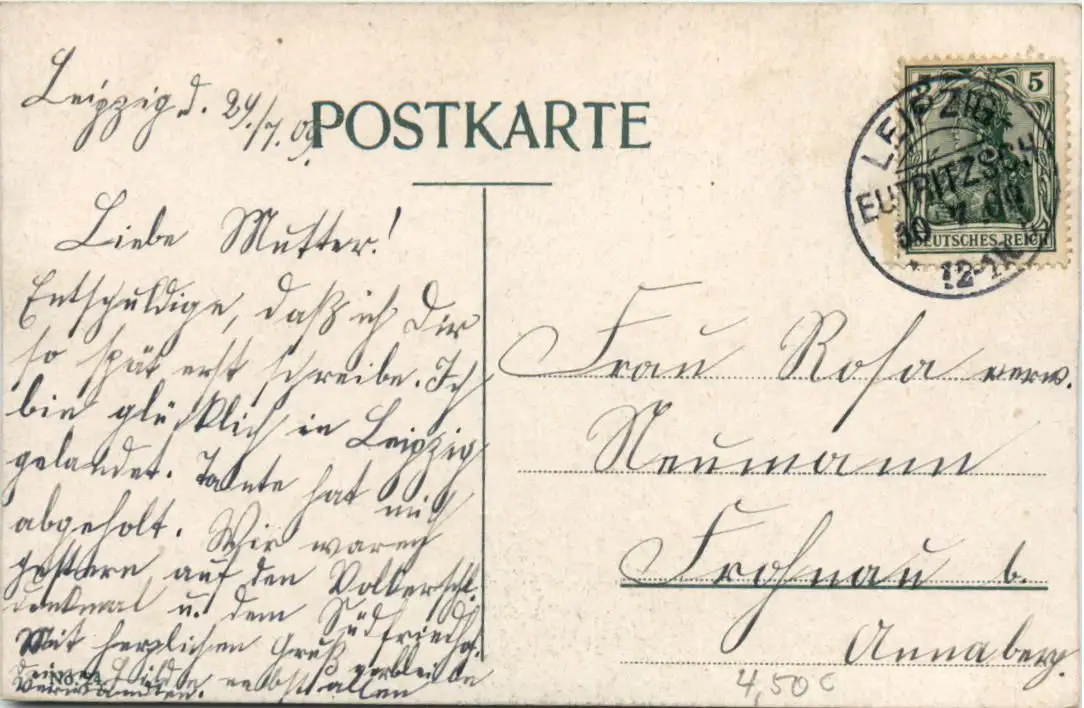 Leipzig d. 29./7. 09.
POSTKARTE
5
LEIPZIG
EUTRITZSCH
30 7 09
12-1N
DEUTSCHES REICH
Liebe Mutter!
Entschuldige, daß ich Dir
so spät erst schreibe. Ich
bin glücklich in Leipzig
gelandet. Tante hat mich
abgeholt. Wir waren
gestern auf den Völkerschl.
denkmal u. dem Südfriedhof.
Mit herzlichen Gruß verbleibe
deine Hilde nebst allen
Verwandten.
Frau Rosa verw.
Neumann
Frohnau b.
Annaberg.
4,50 €